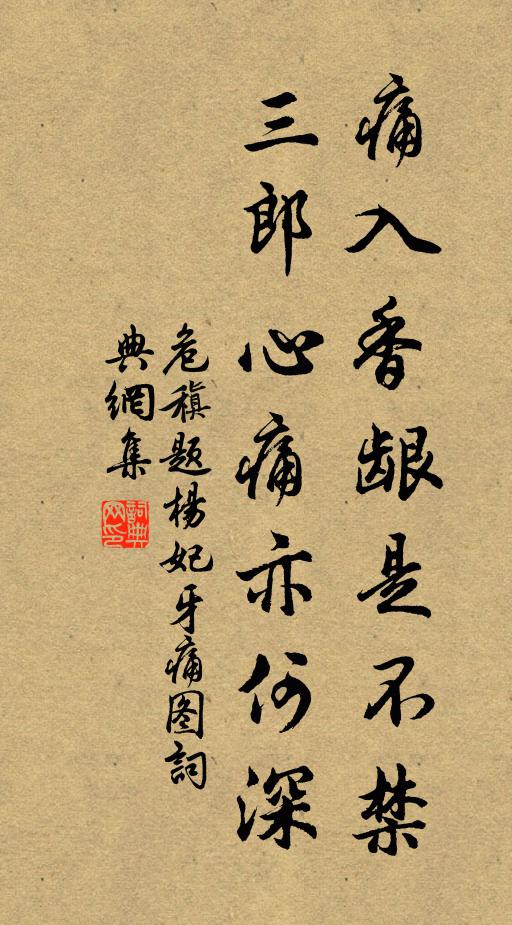 痛入香龈是不禁
三郎心痛亦何深
危稹题楊妃牙痛图詞
典網集
詞典
网印